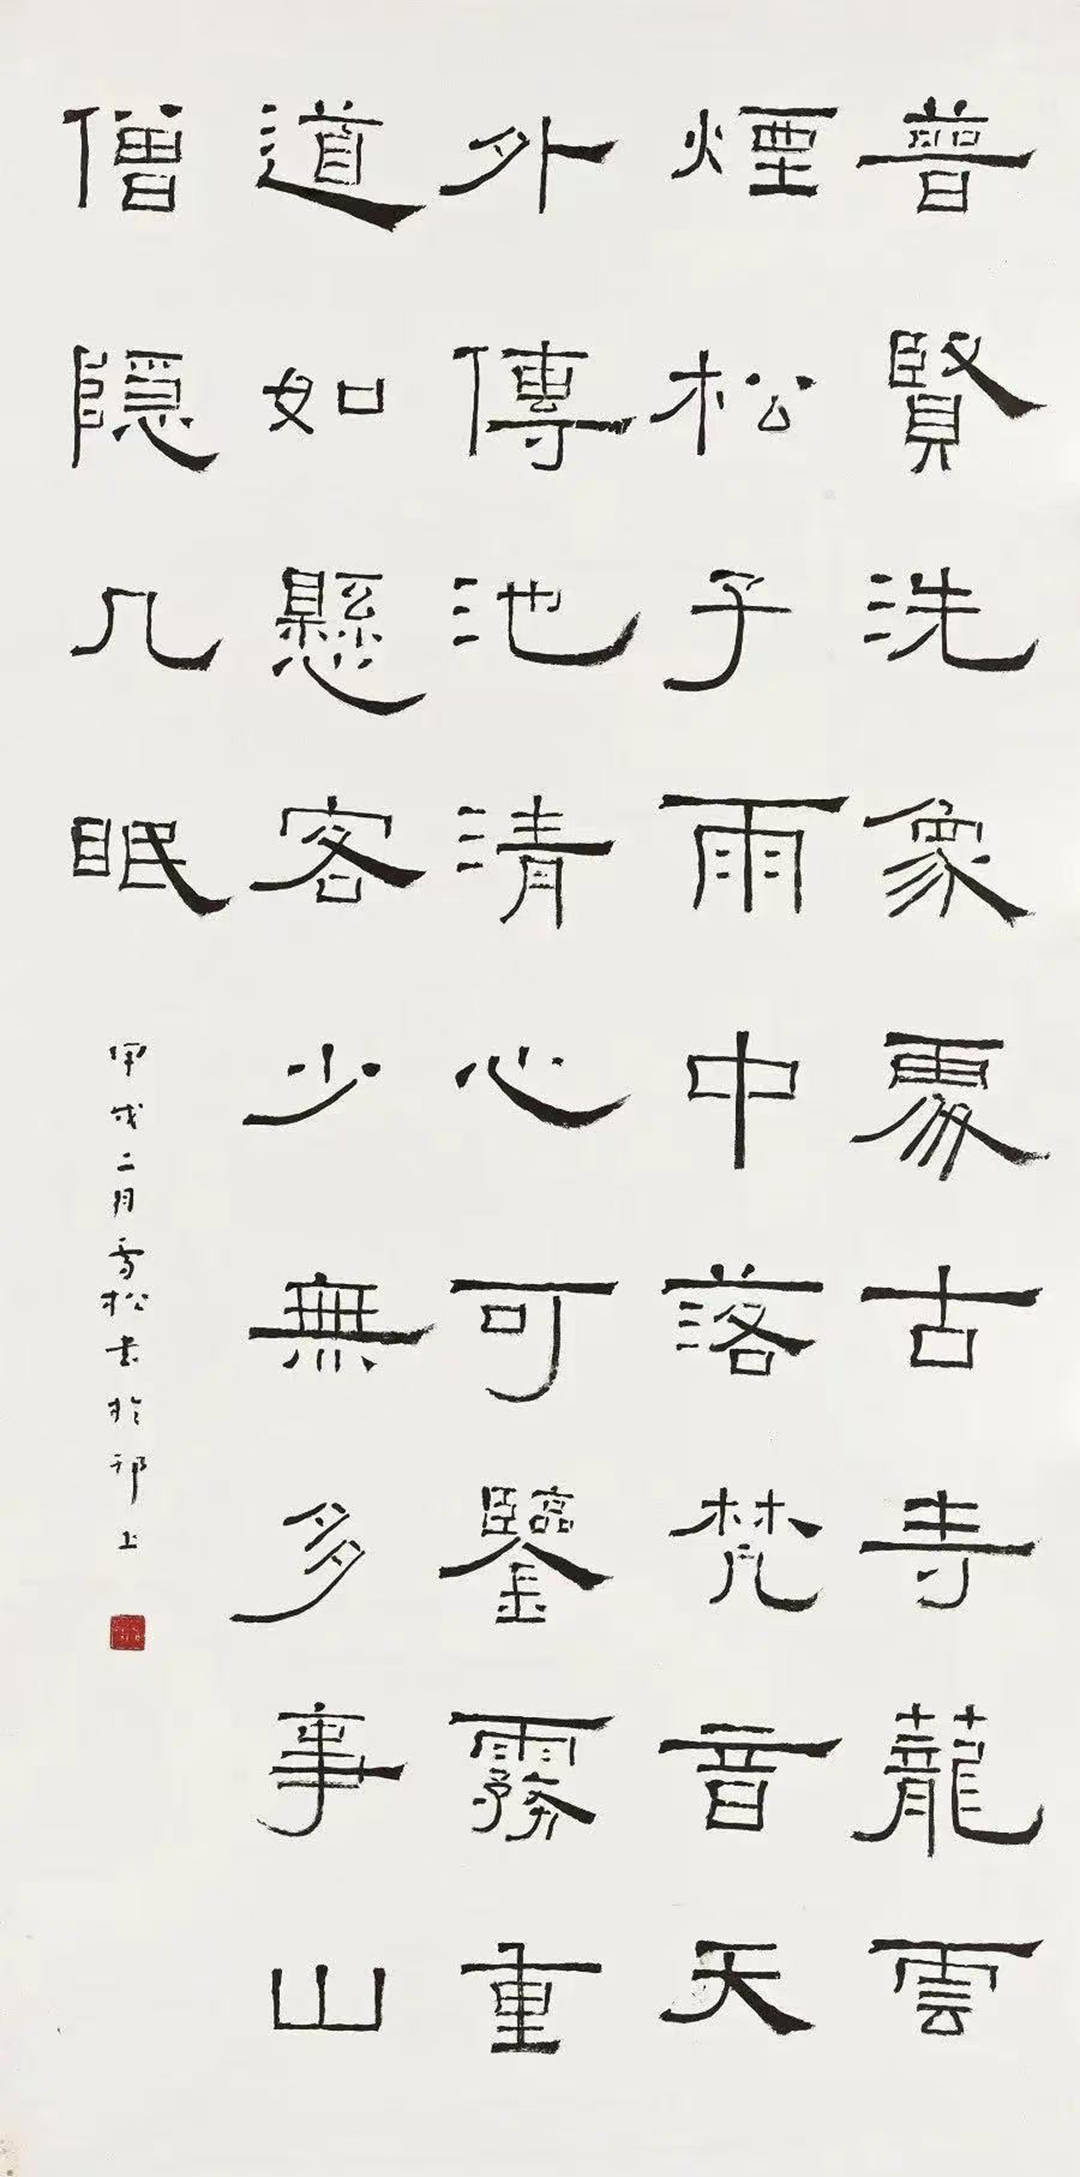 普賢洗象處古寺蘢雲
煙松子雨中落梵音天
外傳池清心可鑒霧重
道如懸客少無多事山
僧隱几眠
甲戌二月雪松書於邗上